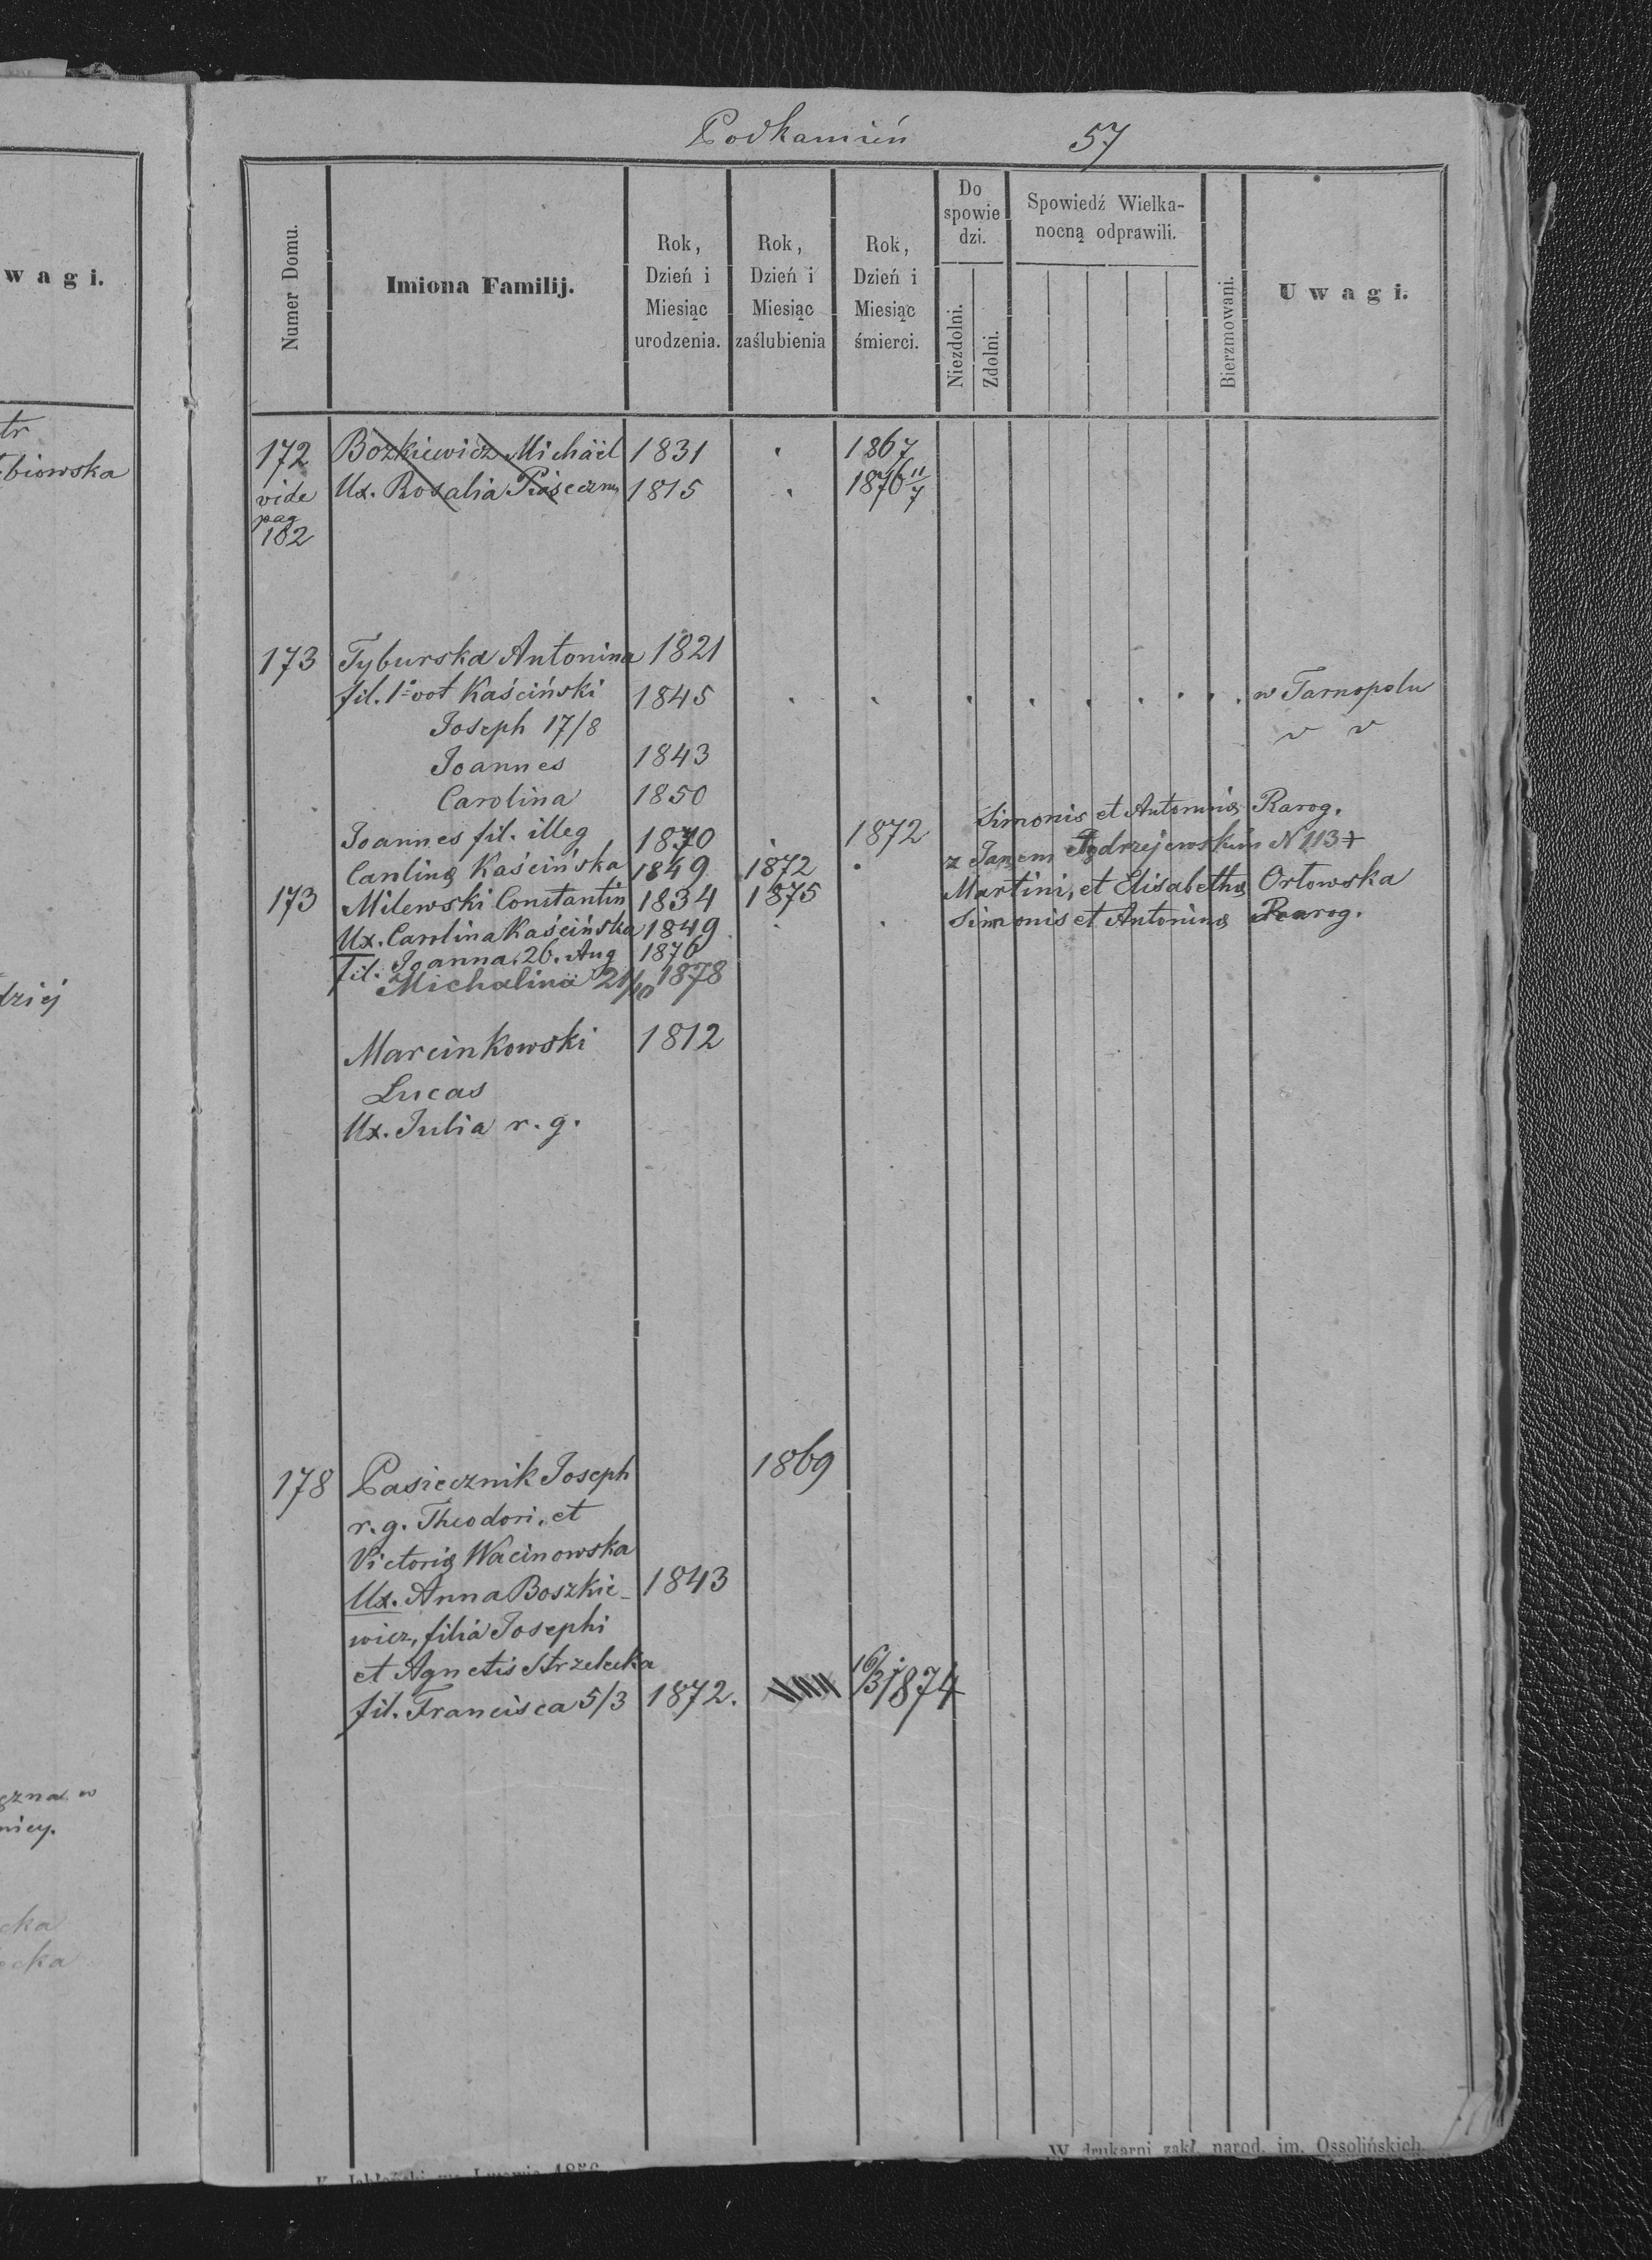 Podkamień 57
Numer Domu.
Imiona Familij.
Rok, Dzień i Miesiąc urodzenia.
Rok, Dzień i Miesiąc zaślubienia
Rok, Dzień i Miesiąc śmierci.
Do spowie dzi.
Niezdolni.
Zdolni.
Spowiedź Wielka-
nocną odprawili.
Bierzmowani.
Uwagi.
wagi.
tr
biowska
dziej
czna w
nicy.
cka
ecka
172 Bozkiewicz Michäel 1831 . 1867
wide Ux. Rosalia 1815 . 1876 11/7
pag
182
173 Tyburska Antonina 1821
fil. 1º vot Kaściński 1845 . . . . . . . . . w Tarnopolu
Joseph 17/8 v v
Joannes 1843
Carolina 1850
Simonis et Antoninæ Rarog.
Joannes fil. illeg 1870 . 1872
z Janem Jędrzejewskim N 113+
Carolina Kaścińska 1849 1872 .
173 Milewski Constantin 1834 1875 Martini, et Elisabethæ Orłowska
Ux. Carolina Kaścińska 1849 . . Simonis et Antoninæ Rarog.
fil. Joanna. 26. Aug 1876
Michalina 21/10 1878
Marcinkowski 1812
Lucas
Ux. Julia r. g.
178 Pasiecznik Joseph 1869
r. g. Theodori, et
Victoriæ Wacinowska
Ux. Anna Boszkie- 1843
wicz, filia Josephi
et Agnetis Strzelecka
fil. Francisca 5/3 1872. 16/3 1874
W drukarni zakł. narod. im. Ossolińskich.